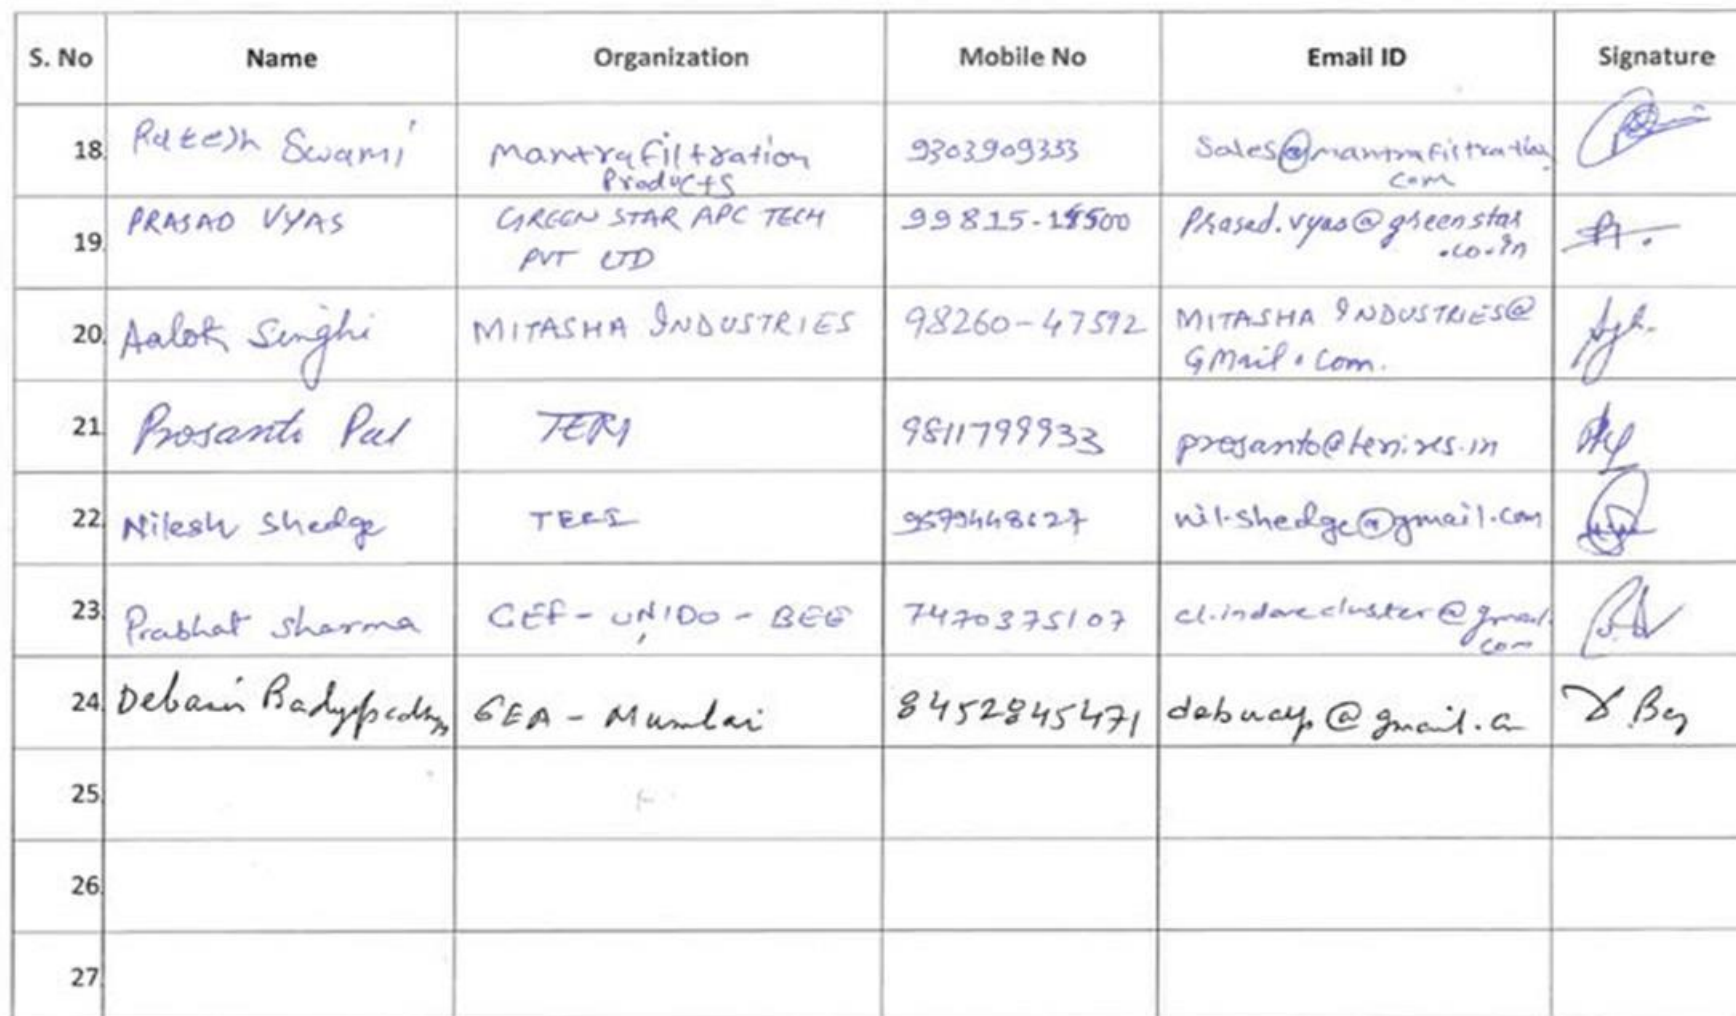 S. No Name Organization Mobile No Email ID Signature
18. Ratesh Swami Mantra filtration 9303909333 Sales@mantrafiltration.
Products com
19. PRASAD VYAS GREEN STAR APC TECH 99815- Prasad.vyas@greenstar
PVT LTD .co.in
20. Aalok Singhi MITASHA INDUSTRIES 98260-47592 MITASHA INDUSTRIES@
GMail.com.
21. Prosanto Pal TERI 9811799933 prosanto@teri.res.in
22. Nilesh Shedge TERI nil.shedge@gmail.com
23. Prabhat Sharma GEF-UNIDO-BEE 7470375107 cl.indorecluster@gmail.
com
24. GEA - Mumbai 8452845471
25.
26.
27.